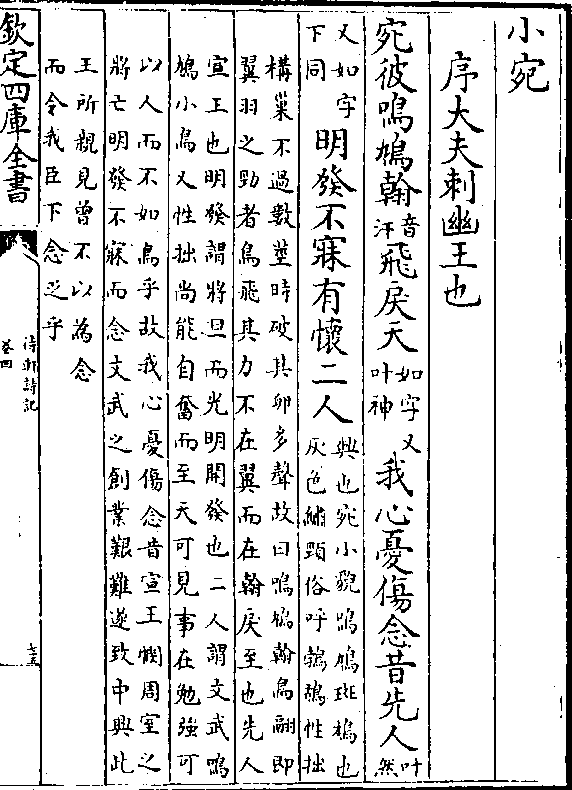 小宛
序大夫刺幽王也
宛彼鳴鳩翰音汗飛戾天如字又叶神我心憂傷念昔先人叶然
又如字下同明發不寐有懷二人興也宛小貌鳴鳩斑鳩也灰色繡頸俗呼鵓鴣性拙
構巢不過數莖時破其卵多聲故曰鳴鳩翰鳥翮即
翼羽之勁者鳥飛其力不在翼而在翰戾至也先人
宣王也明發謂將旦而光明開發也二人謂文武鳴
鳩小鳥又性拙尚能自奮而至天可見事在勉強可
以人而不如鳥乎故我心憂傷念昔宣王憫周室之
將亡明發不寐而念文武之創業艱難遂致中興此
王所親見曾不以為念
而令我臣下念之乎
欽定四庫全書
待軒詩記
卷四